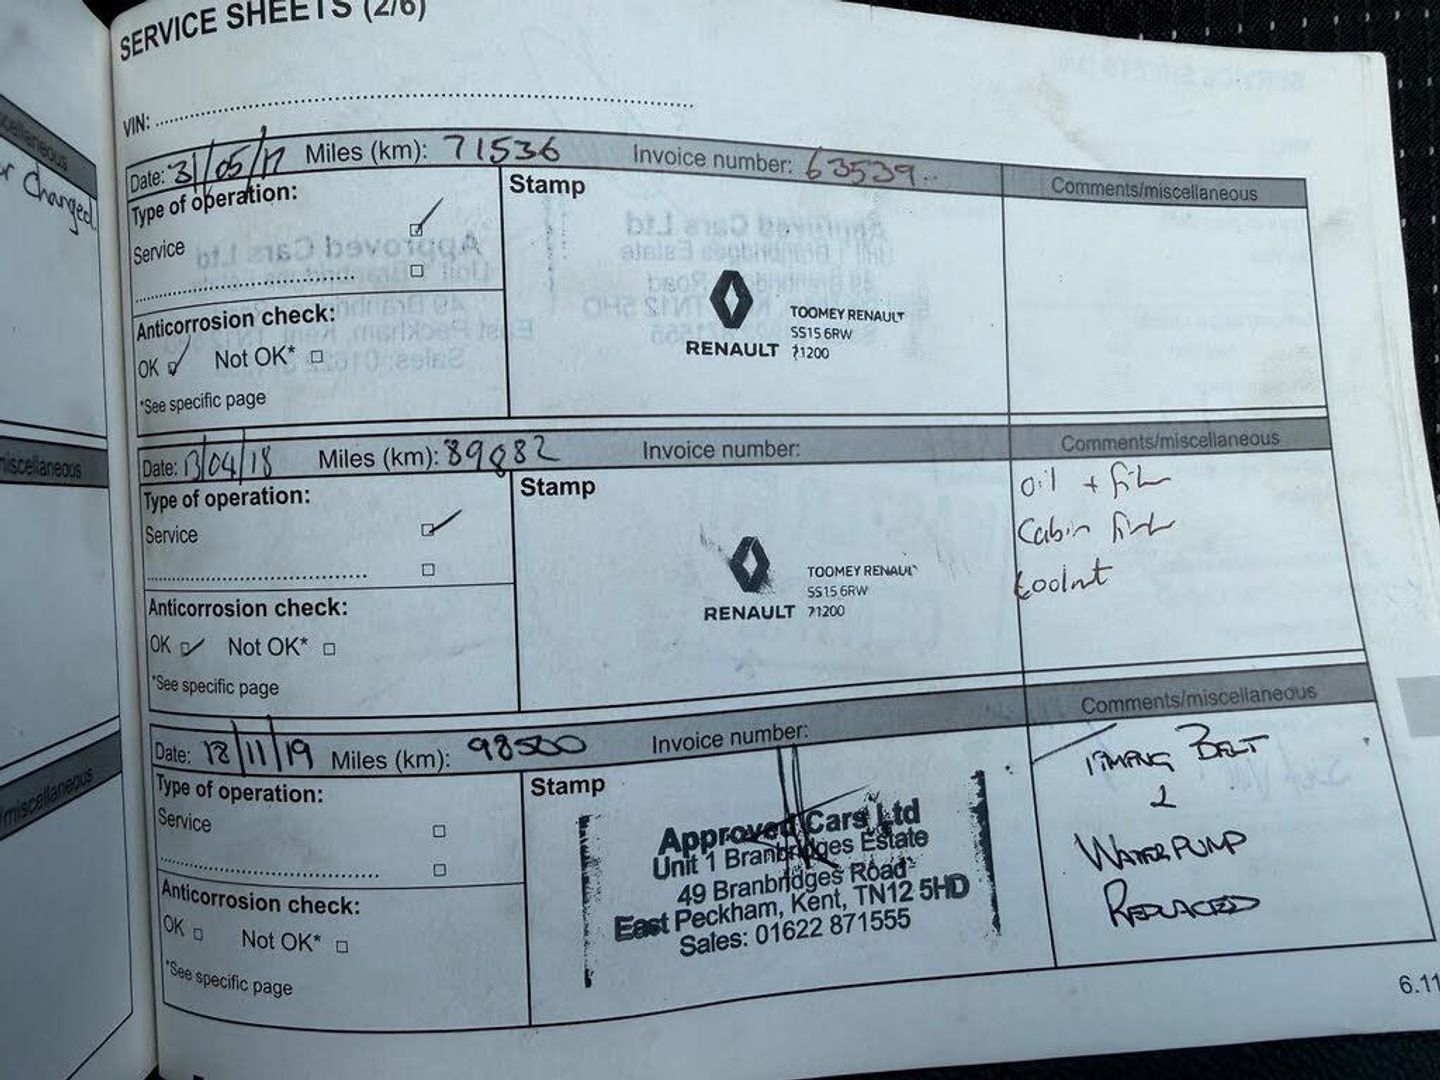 SERVICE SHEETS (2/6)
VIN:
Date: 31/05/17 Miles (km): 71536 Invoice number: 63539 Comments/miscellaneous
Type of operation: Stamp
Service
RENAULT
TOOMEY RENAULT
SS15 6RW
71200
Anticorrosion check:
OK Not OK*
*See specific page
Date: 13/04/18 Miles (km): 89882 Invoice number: Comments/miscellaneous
Type of operation: Stamp
Service
RENAULT
TOOMEY RENAULT
SS15 6RW
71200
Oil + filt
Cabin filt
Coolnt
Anticorrosion check:
OK Not OK*
*See specific page
Date: 12/11/19 Miles (km): 98500 Invoice number: Comments/miscellaneous
Type of operation: Stamp
Service
Approved Cars Ltd
Unit 1 Branbridges Estate
49 Branbridges Road
East Peckham, Kent, TN12 5HD
Sales: 01622 871555
TIMING BELT
&
WATER PUMP
REPLACED
Anticorrosion check:
OK Not OK*
*See specific page
6.11
miscellaneous
r changed.
miscellaneous
/miscellaneous